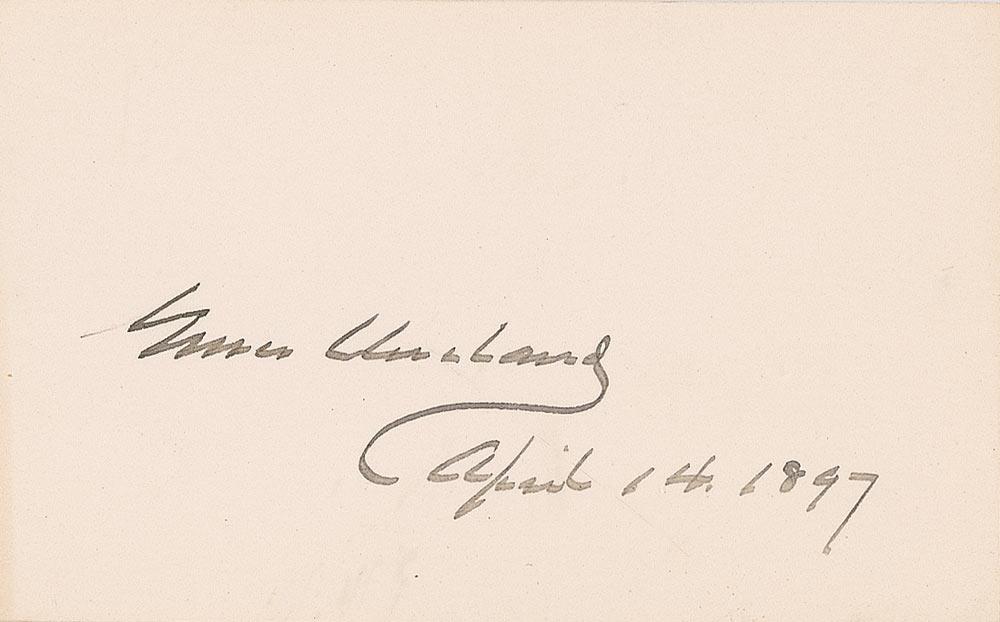 Grover Cleveland
April 14. 1897